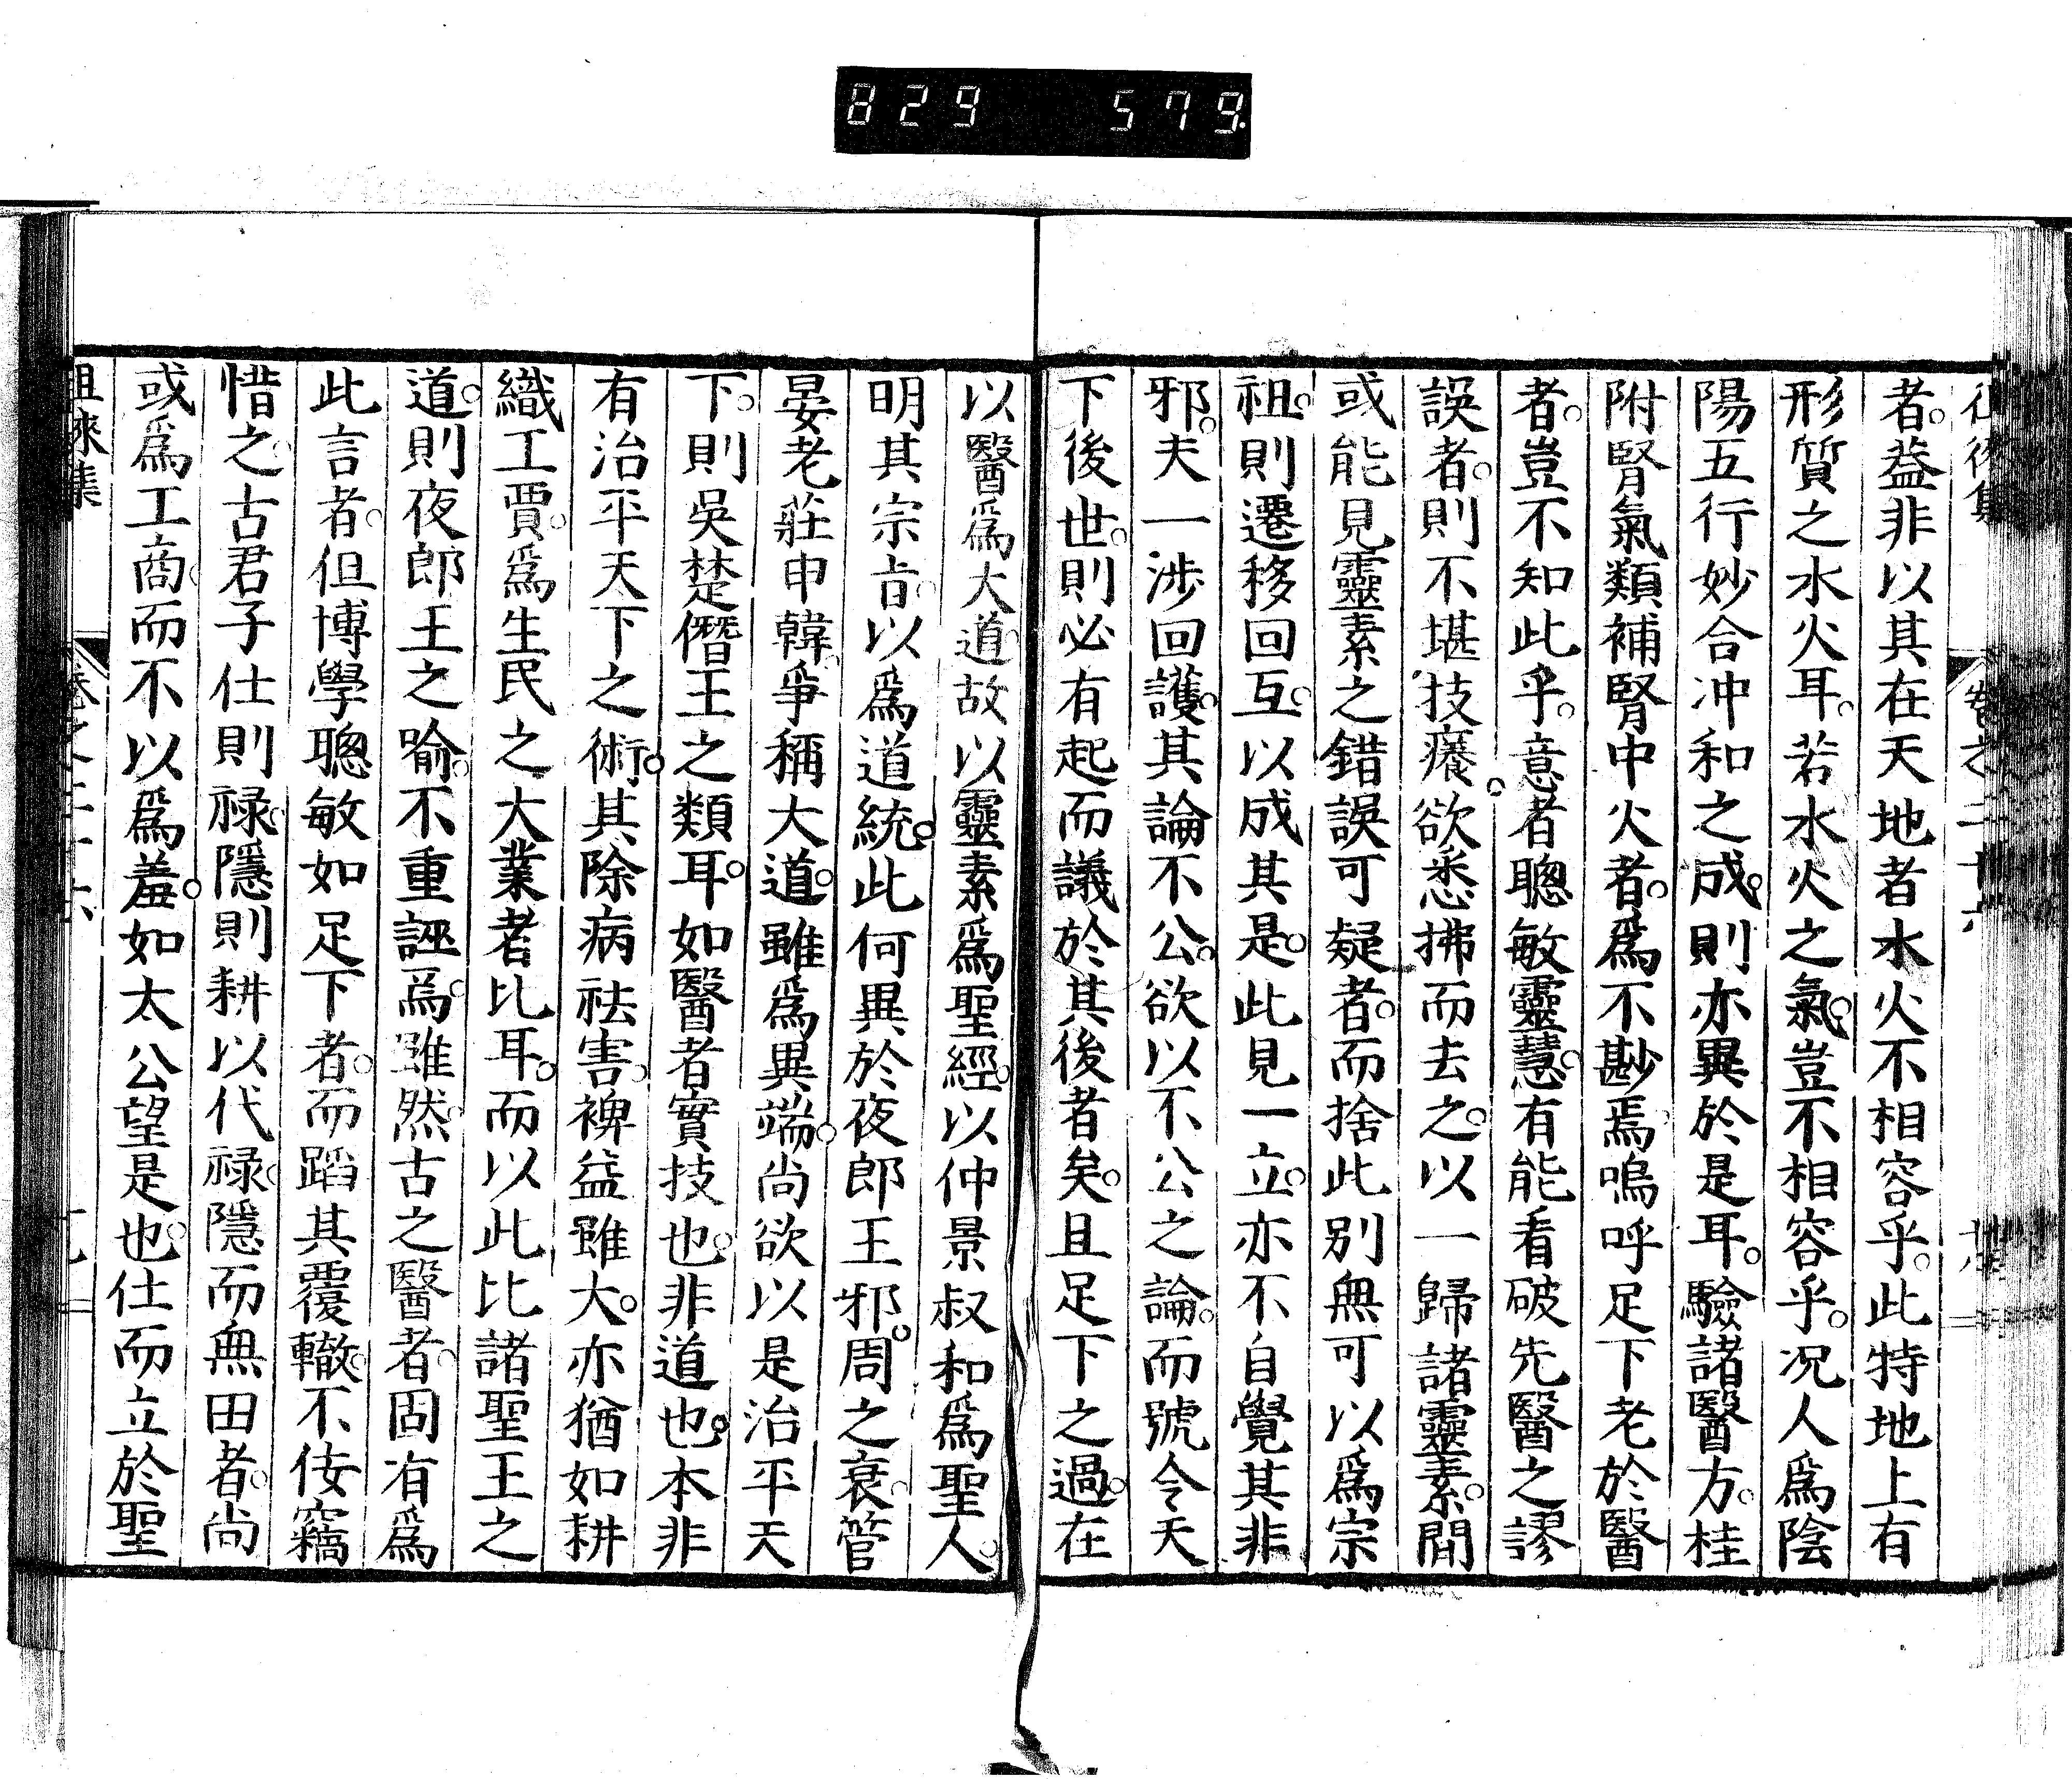 829 579
者。葢非以其在天地者水火不相容乎。此特地上有
形質之水火耳。若水火之氣。豈不相容乎。况人爲陰
陽五行妙合冲和之成。則亦異於是耳。驗諸醫方。桂
附腎氣類補腎中火者。爲不尠焉。嗚呼足下老於醫
者。豈不知此乎。意者聰敏靈慧。有能看破先醫之謬
誤者。則不堪技癢。欲悉拂而去之。以一歸諸靈素。間
或能見靈素之錯誤可疑者。而捨此别無可以爲宗
祖。則遷移回互。以成其是。此見一立。亦不自覺其非
邪。夫一涉回護。其論不公。欲以不公之論。而號令天
下後世。則必有起而議於其後者矣。且足下之過。在
以醫爲大道。故以靈素爲聖經。以仲景叔和爲聖人。
明其宗旨。以爲道統。此何異於夜郎王邪。周之衰。管
晏老莊申韓。爭稱大道。雖爲異端。尚欲以是治平天
下。則吳楚僭王之類耳。如醫者實技也。非道也。本非
有治平天下之術。其除病祛害。裨益雖大。亦猶如耕
織工賈。爲生民之大業者比耳。而以此比諸聖王之
道。則夜郎王之喻。不重誣焉。雖然。古之醫者。固有爲
此言者。但博學聰敏如足下者。而蹈其覆轍。不佞竊
惜之。古君子仕則祿。隱則耕以代祿。隱而無田者。尚
或爲工商。而不以爲羞。如太公望是也。仕而立於聖
徂徠集 卷之二十六